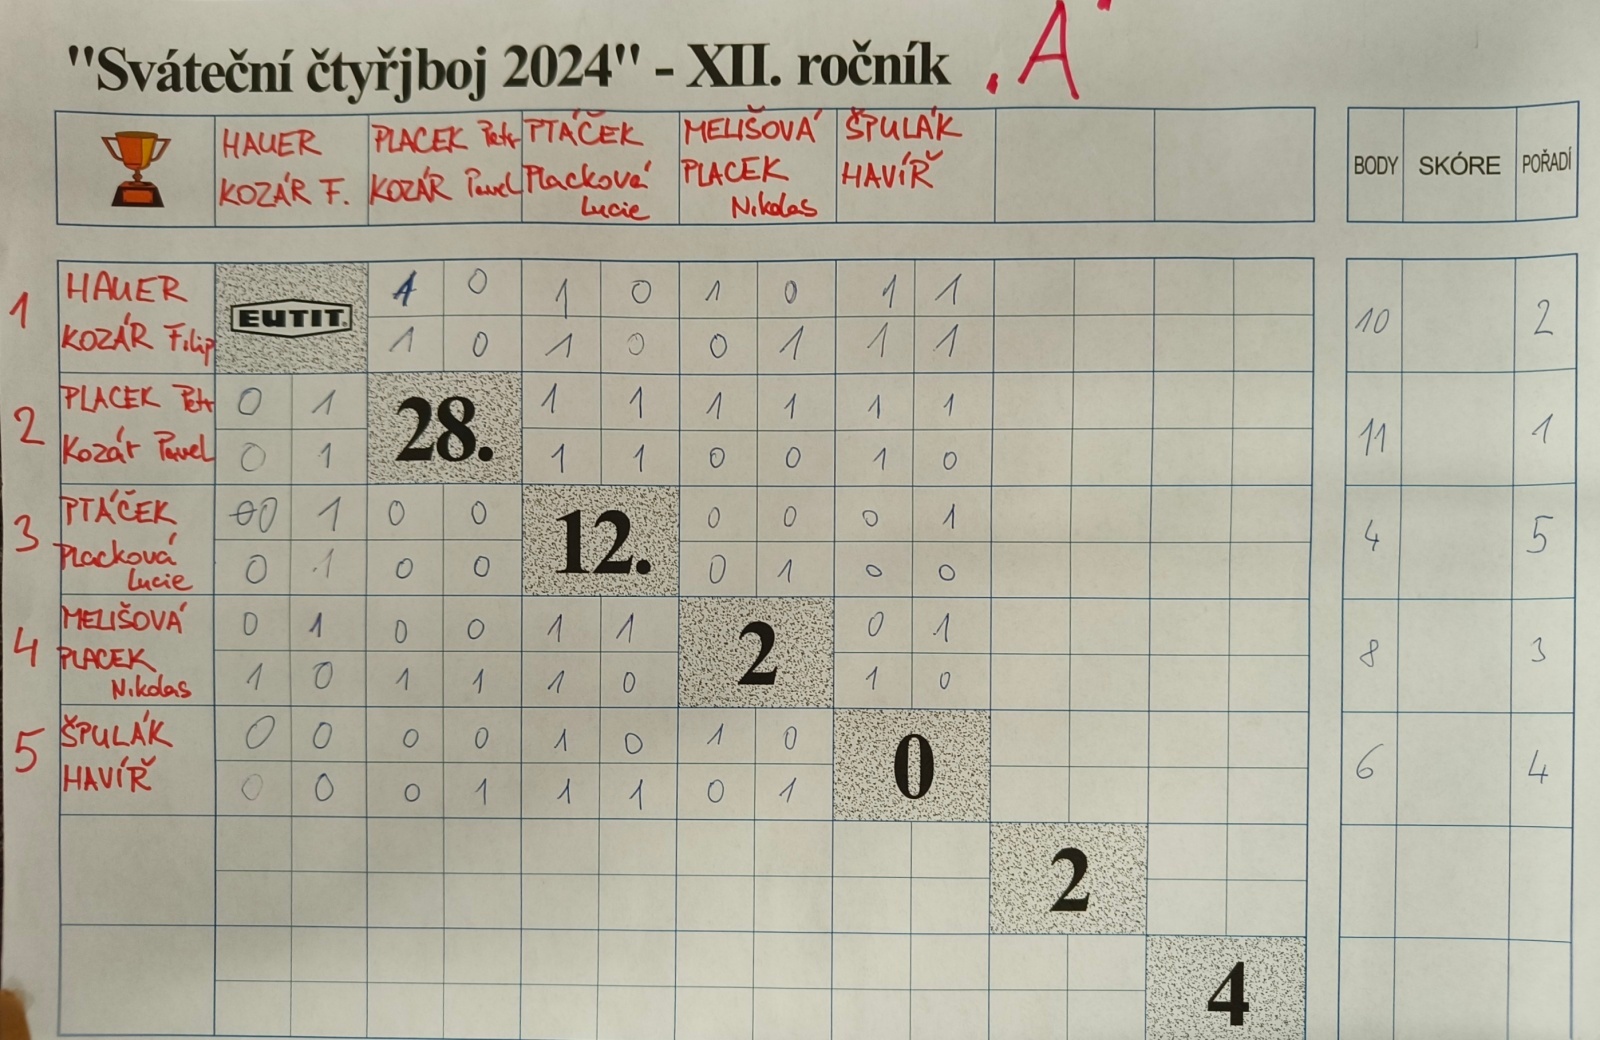 "Sváteční čtyřjboj 2024" - XII. ročník „A"
HAUER PLACEK Petr PTÁČEK MELIŠOVÁ ŠPULÁK BODY SKÓRE POŘADÍ
KOZÁR F. KOZÁR Pavel Placková PLACEK HAVÍŘ
Lucie Nikolas
1 HAUER EUTIT 1 0 1 0 1 0 1 1 10 2
KOZÁR Filip 1 0 1 0 0 1 1 1
2 PLACEK Petr 0 1 28. 1 1 1 1 1 1 11 1
Kozár Pavel 0 1 1 1 0 0 1 0
3 PTÁČEK 0 1 0 0 12. 0 0 0 1 4 5
Placková 0 1 0 0 0 1 0 0
Lucie
4 MELIŠOVÁ 0 1 0 0 1 1 2 0 1 8 3
PLACEK 1 0 1 1 1 0 1 0
Nikolas
5 ŠPULÁK 0 0 0 0 1 0 1 0 0 6 4
HAVÍŘ 0 0 0 1 1 1 0 1
2
4